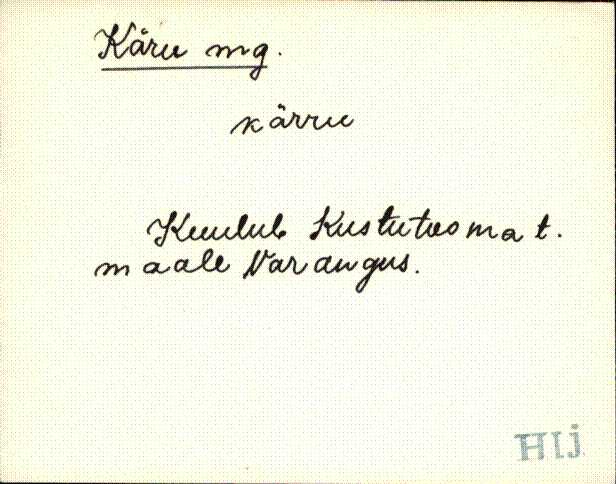 Käru mg.
kärru
Kuulub Kustutusmat.
maale Varangus.
HJj